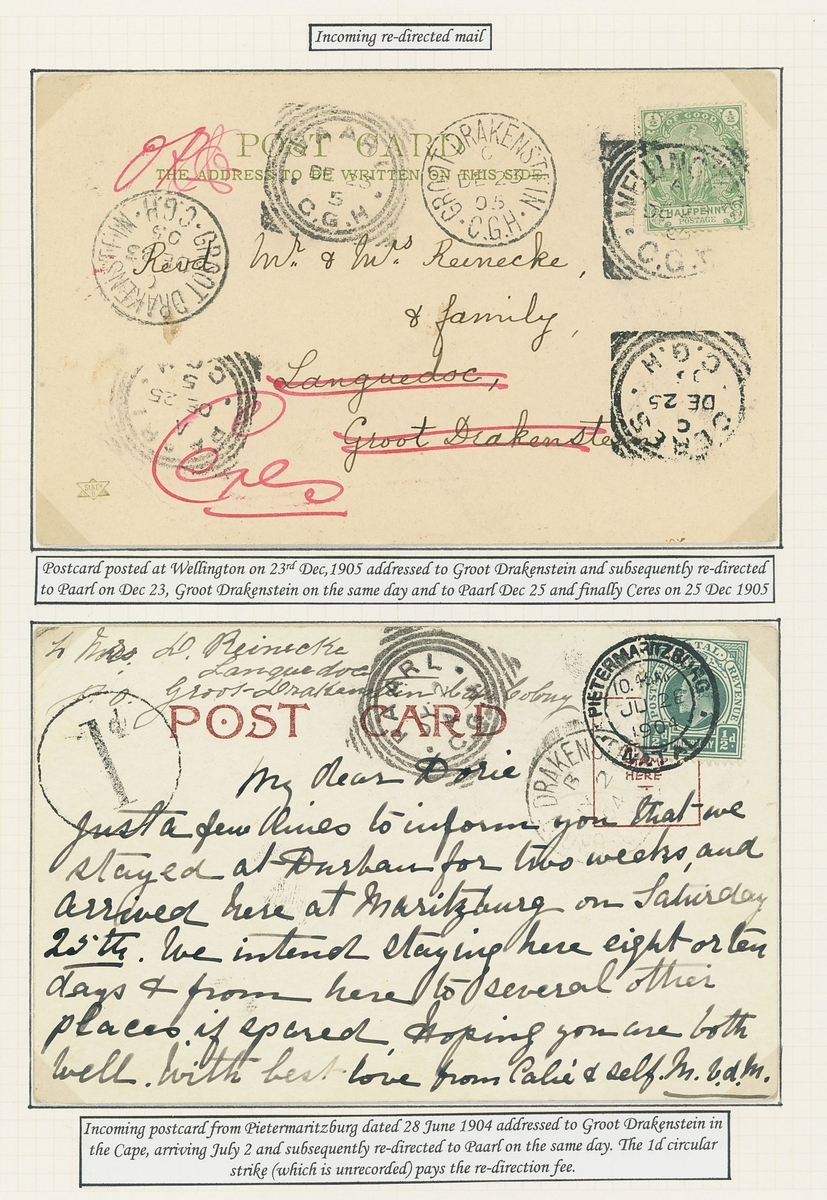 Incoming re-directed mail
POST CARD
THE ADDRESS TO BE WRITTEN ON THIS SIDE
PAARL
DE 23
5
C.G.H
GROOT DRAKENSTEIN
C
DE 23
05
C.G.H
OF GOOD
½
½
HALFPENNY
POSTAGE
WELLINGTON
C.G.H
GROOT DRAKENSTEIN
C.G.H.
05
Revd Mr & Mrs Reinecke,
& family,
Languedoc,
Groot Drakenste
Ceres
PAARL
DE 25
5
C.G.H
CERES
C
DE 25
05
C.G.H
Postcard posted at Wellington on 23rd Dec,1905 addressed to Groot Drakenstein and subsequently re-directed
to Paarl on Dec 23, Groot Drakenstein on the same day and to Paarl Dec 25 and finally Ceres on 25 Dec 1905
Mrs. D. Reinecke
Languedoc
Groot-Drakenstein Cape Colony
1d
POST CARD
PAARL
DRAKENS
B
2
PIETERMARITZBURG
JU 28
1904
NATAL
POSTAL REVENUE
½d
½d
HERE
My dear Dorie
Just a few lines to inform you that we
stayed at Durban for two weeks, and
arrived here at Maritzburg on Saturday
25th. We intend staying here eight or ten
days & from here to several other
places if spared. Hoping you are both
well. With best love from Calie & self. M. v.d.M.
Incoming postcard from Pietermaritzburg dated 28 June 1904 addressed to Groot Drakenstein in
the Cape, arriving July 2 and subsequently re-directed to Paarl on the same day. The 1d circular
strike (which is unrecorded) pays the re-direction fee.